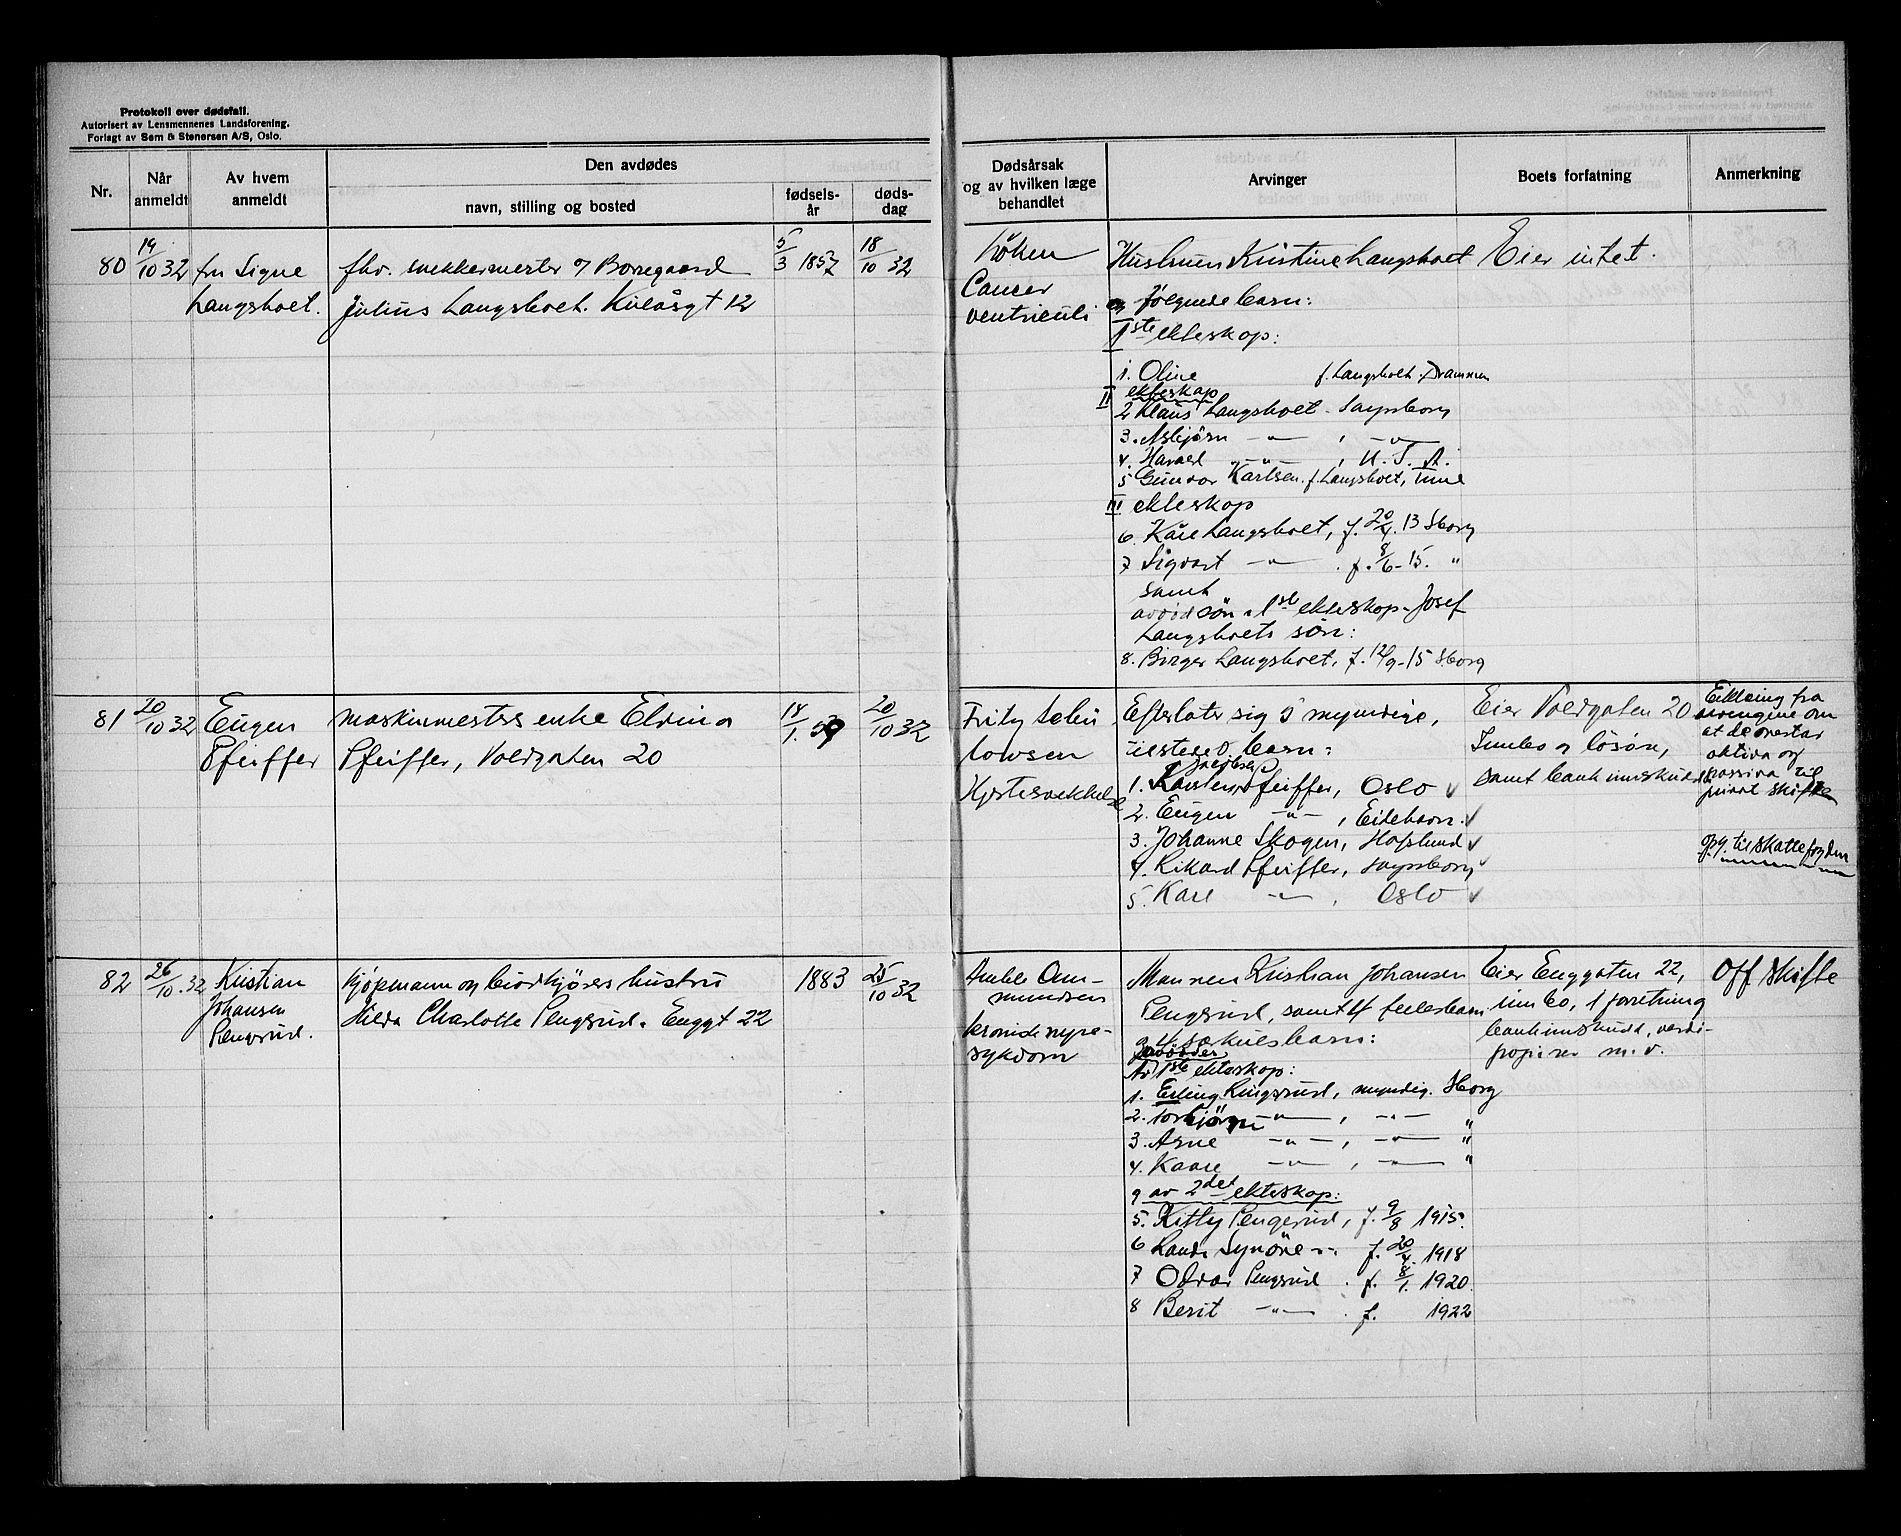 Protokoll over dødsfall.
Autorisert av Lensmennenes Landsforening.
Forlagt av Sem & Stenersen A/S, Oslo.
Nr.
Når anmeldt
Av hvem anmeldt
Den avdødes
navn, stilling og bosted
fødselsår
dødsdag
Dødsårsak og av hvilken læge behandlet
Arvinger
Boets forfatning
Anmerkning
80
19/10 32
fru Signe
Langsholt.
fhv. snekkermester v/ Borregaard
Julius Langsholt. Kulåsgt 12
5/3 1857
18/10 32
Löken
Cancer
ventriculi
Hustruen Kristine Langsholt
og følgende barn:
I ste ekteskap:
1. Oline f. Langsholt. Drammen
II ekteskap
2 Klaus Langsholt - Sarpsborg
3. Asbjørn —"— , —"—
4. Harald —"— , U.S.A.
5 Gunvor Karlsen f. Langsholt, Tune
III ekteskap
6. Kåre Langsholt, f. 20/4. 13 Sborg
7 Sigvart —"— . f. 8/6-15. "
samt
avdød sön a 1ste ekteskap - Josef
Langsholts sön:
8. Birger Langsholt, f. 12/9-15 Sborg
Eier intet.
81
20/10 32
Eugen
Pfeiffer
maskinmesters enke Elvina
Pfeiffer, Voldgaten 20
18/1. 59
20/10 32
Fritz
Hjertesvekkelse
Efterlater sig 5 myndige,
barn:
Jacobsen
1. Karsten Pfeiffer, Oslo ✓
2. Eugen —"— , Eidehavn. ✓
3. Johanne Skogen, Hafslund ✓
4. Rikard Pfeiffer, Sarpsborg ✓
5. Kare —"— , Oslo ✓
Eier Voldgaten 20
Innbo og lösöre,
samt bankinnskudd
Erklæing fra
arvingene om
at de overtar
aktiva og
passiva til
privat skifte
opg. til skattefogden
82
26/10. 32
Kristian
Johansen
Pengsrud.
kjøpmann og hustru
Hilda Charlotte Pengsrud. Enggt 22
1883
25/10 32
Amundsen
kronisk nyresykdom
Mannen Kristian Johansen
Pengsrud, samt 4 fellesbarn
og 4 særkulsbarn:
Av 1ste ekteskap:
1. Erling Ringsrud, myndig. Sborg
2. Torbjörn —"— , —"— "
3. Arne —"— , —"— "
4. Kaare —"— , —"— "
og av 2det ekteskap:
5. Kitty Pengsrud, f. 9/8 1915.
6 Synöve —"— f. 20/4. 1918
7 Odvar Pengsrud . f. 8/1. 1920.
8 Berit —"— . f. 1922
Eier Enggaten 22,
innbo, 1 forretning
bankinnskudd, verdi-
papirer m.v.
Off skifte